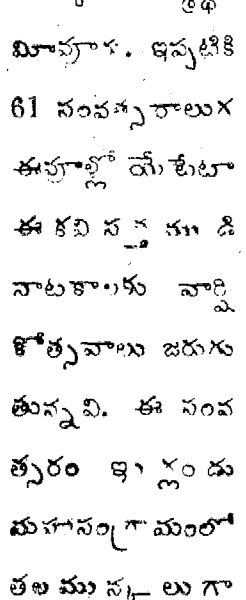 మాపూరు. ఇప్పటికి
61 సంవత్సరాలుగ
ఈవూళ్లో యేటేటా
ఈ కవి
నాటకాలకు వార్షి
కోత్సవాలు జరుగు
తున్నవి. ఈ సంవ
త్సరం ఇంగ్లండు
మహాసంగ్రామంలో
తలమున్కలుగా